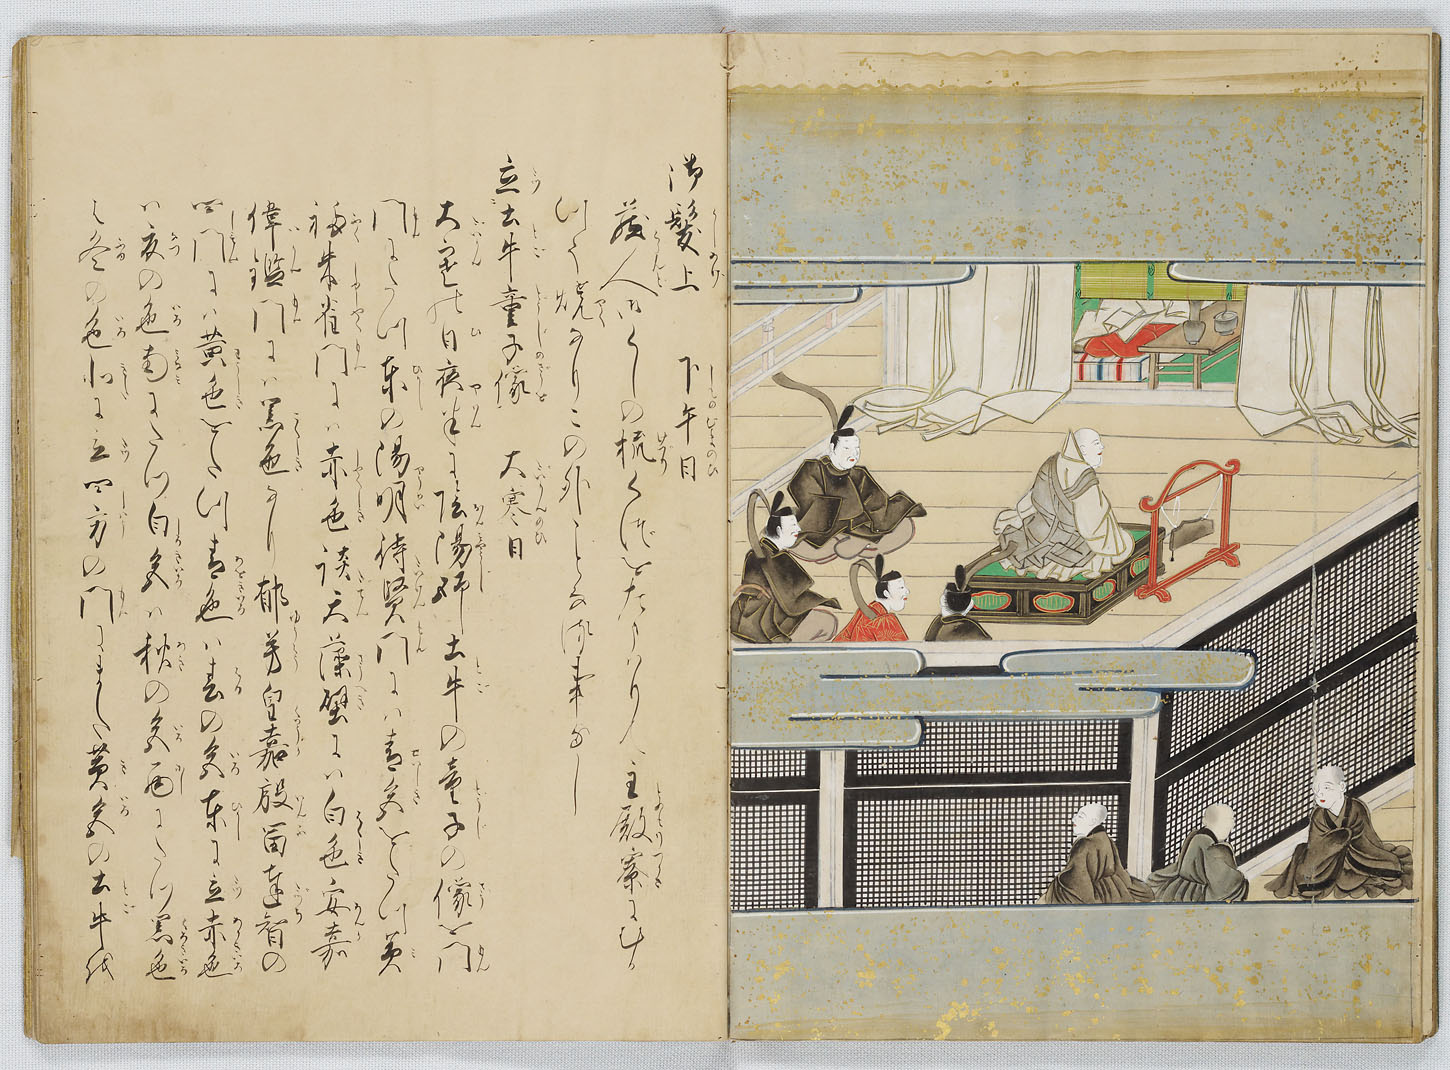 御髪上　下午日
蔵人御くしの梳くつをたまはりて主殿寮にむか
ひて焼なりこの外ことなる事なし
立土牛童子像　大寒日
大寒の日夜半に陰陽師土牛の童子の像を門
門にたつ東の陽明待賢門には青色をたつ美
福朱雀門には赤色談天藻壁には白色安嘉
偉鑑門には黒色なり郁芳皇嘉殷冨達智の
四門には黄色をたつ青色は春の色東に立赤色
は夏の色南にたつ白色は秋の色西にたつ黒色
は冬の色北に立四方の門にまた黄色の土牛を